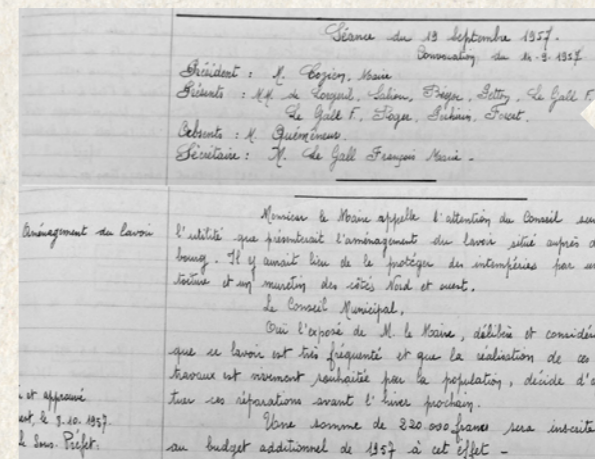 Séance du 19 Septembre 1957.
Convocation du 14-9-1957
Président : M. Cozien, Maire
Présents : MM. de Lorgeril, Salieu, Bléger, Le Gall F.
Le Gall F, Roger, Forest.
Absents : M. Quéméneur.
Secrétaire : M. Le Gall François Marie -
Aménagement du lavoir
Monsieur le Maire appelle l'attention du Conseil sur
l'utilité que présenterait l'aménagement du lavoir situé auprès d
bourg. Il y aurait lieu de le protéger des intempéries par un
toiture et un muretin des côtés Nord et ouest.
Le Conseil Municipal,
Ouï l'exposé de M. le Maire, délibère et considér
que ce lavoir est très fréquenté et que la réalisation de ces
travaux est vivement souhaitée par la population, décide d'
tuer ces réparations avant l'hiver prochain.
Une somme de 220.000 francs sera inscrite
au budget additionnel de 1957 à cet effet -
et approuvé
est, le 9.10.1957.
le Sous-Préfet: